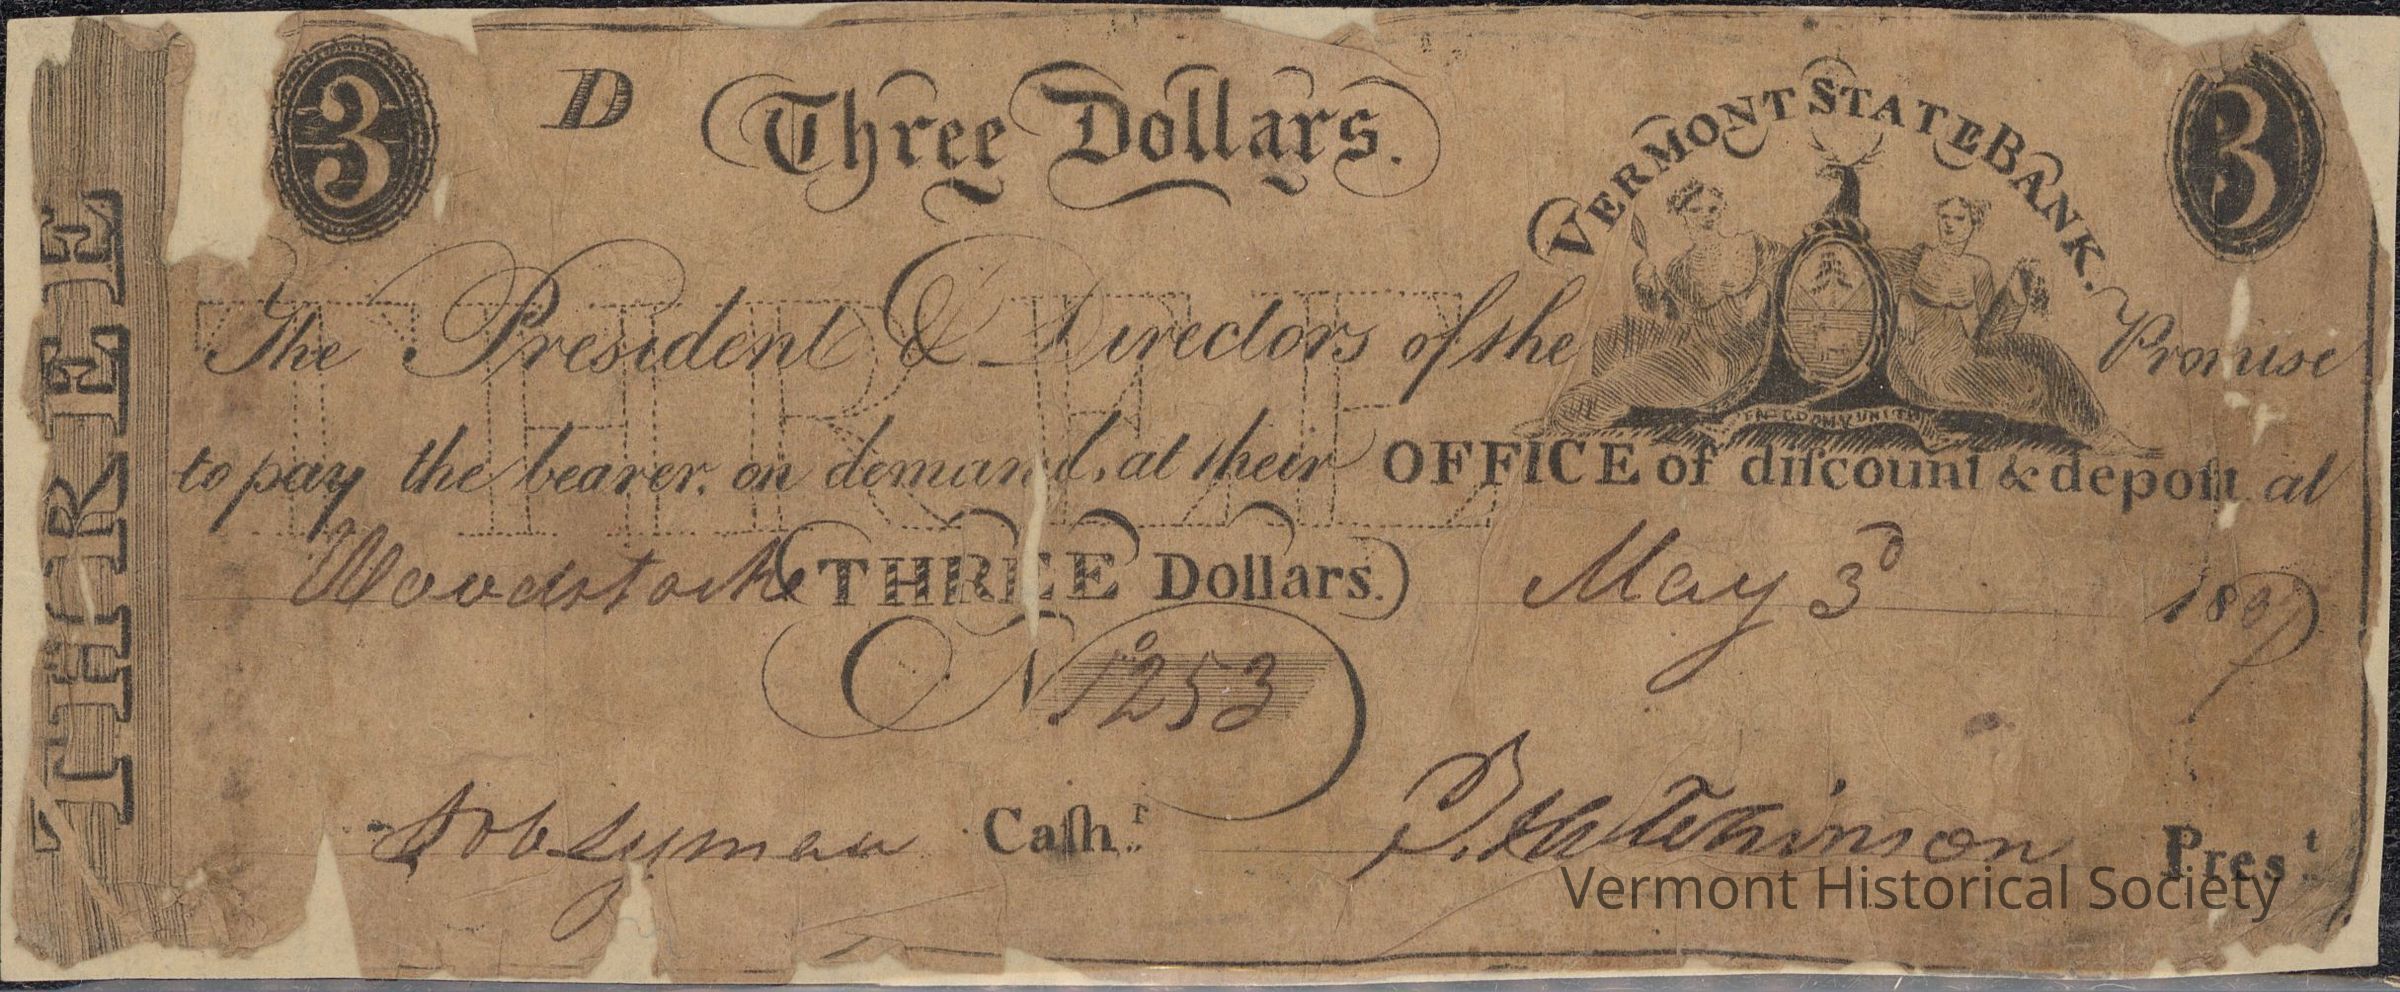 THREE
3 D Three Dollars. VERMONT STATE BANK. 3
THREE
The President & Directors of the Promise
to pay the bearer, on demand, at their OFFICE of diſcount & depoſit at
Woodstock THREE Dollars. May 3d 1807
No 1253
Job Lyman Caſhr. T. Hutchinson Prest.
Vermont Historical Society